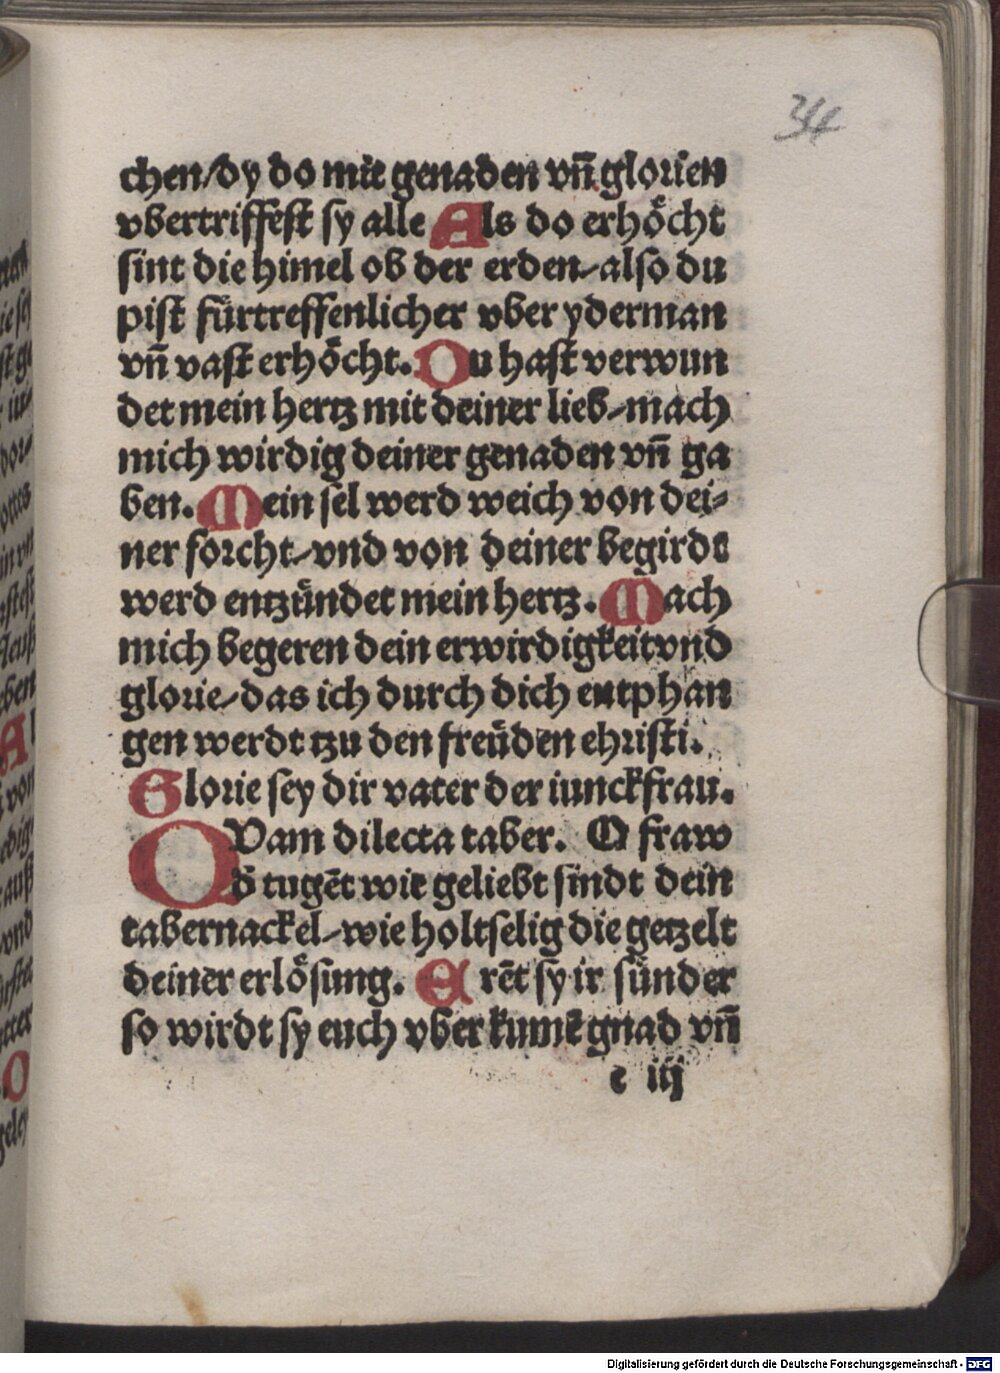 34
chen/dy do mit genaden vñ glorien
vbertriffest sy alle Als do erhöcht
sint die himel ob der erden/also du
pist fürtreffenlicher vber yderman
vñ vast erhöcht. Du hast verwun
det mein hertz mit deiner lieb/mach
mich wirdig deiner genaden vñ ga
ben. Mein sel werd weich von dei⸗
ner forcht/vnd von deiner begirde
werd entzündet mein hertz. Mach
mich begeren dein erwirdigkeit vnd
glorie/das ich durch dich entphan
gen werdt tzu den freüden christi.
Glorie sey dir vater der iunckfrau.
QVam dilecta taber. O fraw
d̄ tugēt wie geliebt sindt dein
tabernackel/wie holtselig die getzelt
deiner erlösung. Erēt sy ir sünder
so wirdt sy euch vber kumē gnad vñ
e iij
Digitalisierung gefördert durch die Deutsche Forschungsgemeinschaft - DFG